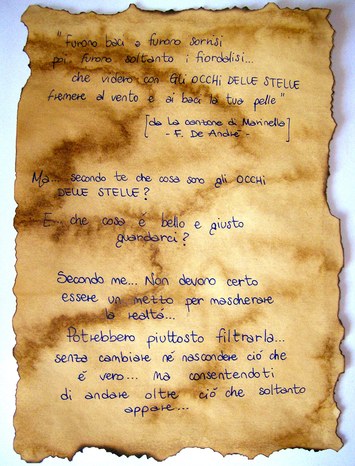 "Furono baci e furono sorrisi
poi furono soltanto i fiordalisi...
che videro con GLI OCCHI DELLE STELLE
fremere al vento e ai baci la tua pelle"
[da La canzone di Marinella]
- F. De André -
Ma... secondo te che cosa sono gli OCCHI
DELLE STELLE?
E... che cosa é bello e giusto
guardarci?
Secondo me... Non devono certo
essere un mezzo per mascherare
la realtà...
Potrebbero piuttosto filtrarla...
senza cambiare né nascondere ciò che
é vero... ma consentendoti
di andare oltre ciò che soltanto
appare...